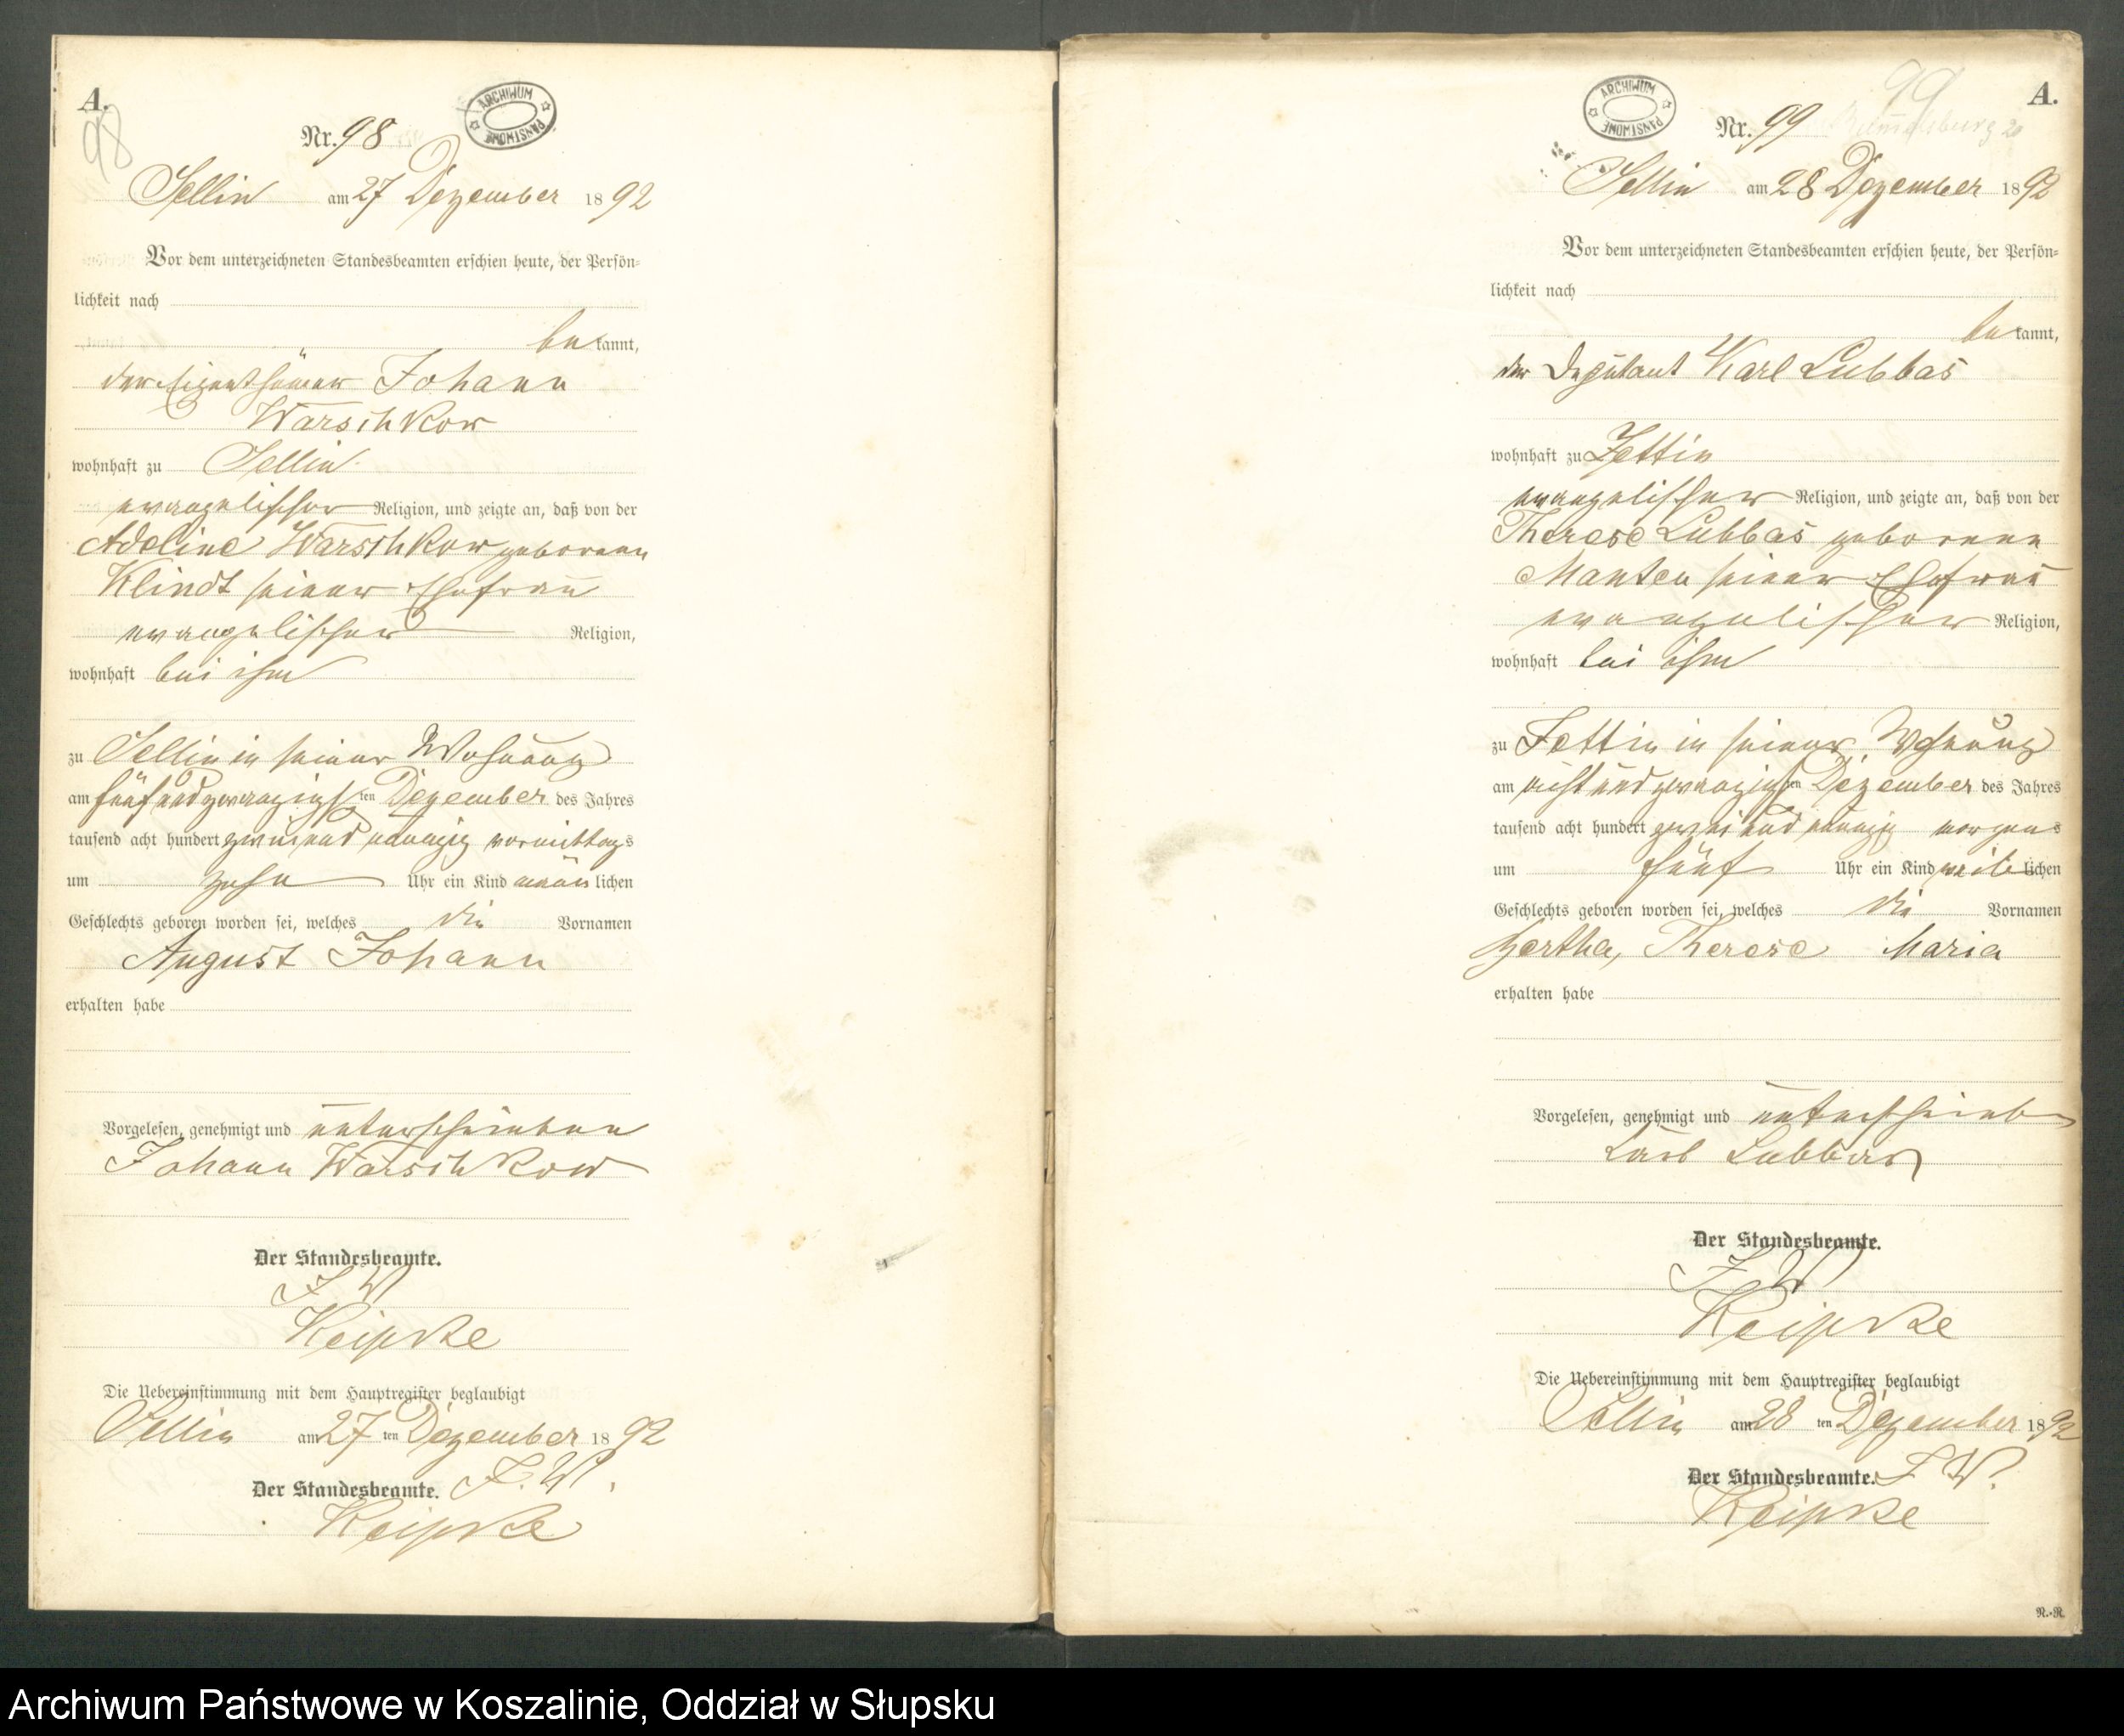 A.
98
ARCHIWUM PAŃSTWOWE
Nr. 98
Sellin am 27 Dezember 1892
Vor dem unterzeichneten Standesbeamten erschien heute, der Persön-
lichkeit nach
bekannt,
der Eigenthümer Johann
Warschkow
wohnhaft zu Sellin
evangelischer Religion, und zeigte an, daß von der
Adeline Warschkow geborenen
Klindt seiner Ehefrau
evangelischer Religion,
wohnhaft bei ihm
zu Sellin in seiner Wohnung
am fünfundzwanzigsten Dezember des Jahres
tausend acht hundert zweiundneunzig vormittags
um zehn Uhr ein Kind männlichen
Geschlechts geboren worden sei, welches die Vornamen
August Johann
erhalten habe
Vorgelesen, genehmigt und unterschrieben
Johann Warschkow
Der Standesbeamte.
J. W.
Keipke
Die Uebereinstimmung mit dem Hauptregister beglaubigt
Sellin am 27 ten Dezember 1892
Der Standesbeamte. J. W.
Keipke
99
A.
ARCHIWUM PAŃSTWOWE
Nr. 99
Sellin am 28 Dezember 1892
Vor dem unterzeichneten Standesbeamten erschien heute, der Persön-
lichkeit nach
bekannt,
der Deputant Karl Lubbas
wohnhaft zu Zettin
evangelischer Religion, und zeigte an, daß von der
Therese Lubbas geborenen
Manten seiner Ehefrau
evangelischer Religion,
wohnhaft bei ihm
zu Zettin in seiner Wohnung
am achtundzwanzigsten Dezember des Jahres
tausend acht hundert zwei und neunzig morgens
um fünf Uhr ein Kind weiblichen
Geschlechts geboren worden sei, welches die Vornamen
Hertha, Therese Maria
erhalten habe
Vorgelesen, genehmigt und unterschrieben
Karl Lubbas
Der Standesbeamte.
J. W.
Keipke
Die Uebereinstimmung mit dem Hauptregister beglaubigt
Sellin am 28 ten Dezember 1892
Der Standesbeamte. J. W.
Keipke
R.-R.
Archiwum Państwowe w Koszalinie, Oddział w Słupsku